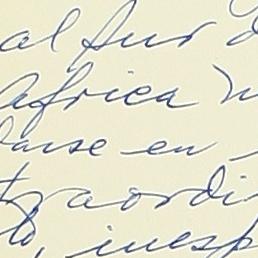 al sur d
Africa n
base en
traordi
to, inesp